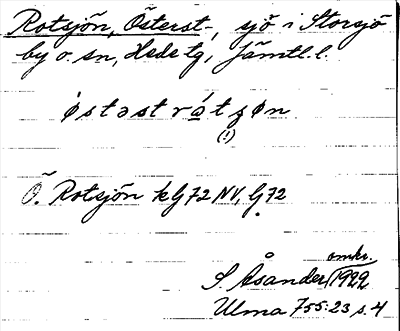 Rotsjön, Österst-, sjö i Storsjö
by o. sn, Hede tg, Jämtl. l.
ǿstəst rátʂøn
(!)
Ö. Rotsjön kG72 NV, G72
S. Åsander omkr. 1929
Ulma 755:23 s. 4